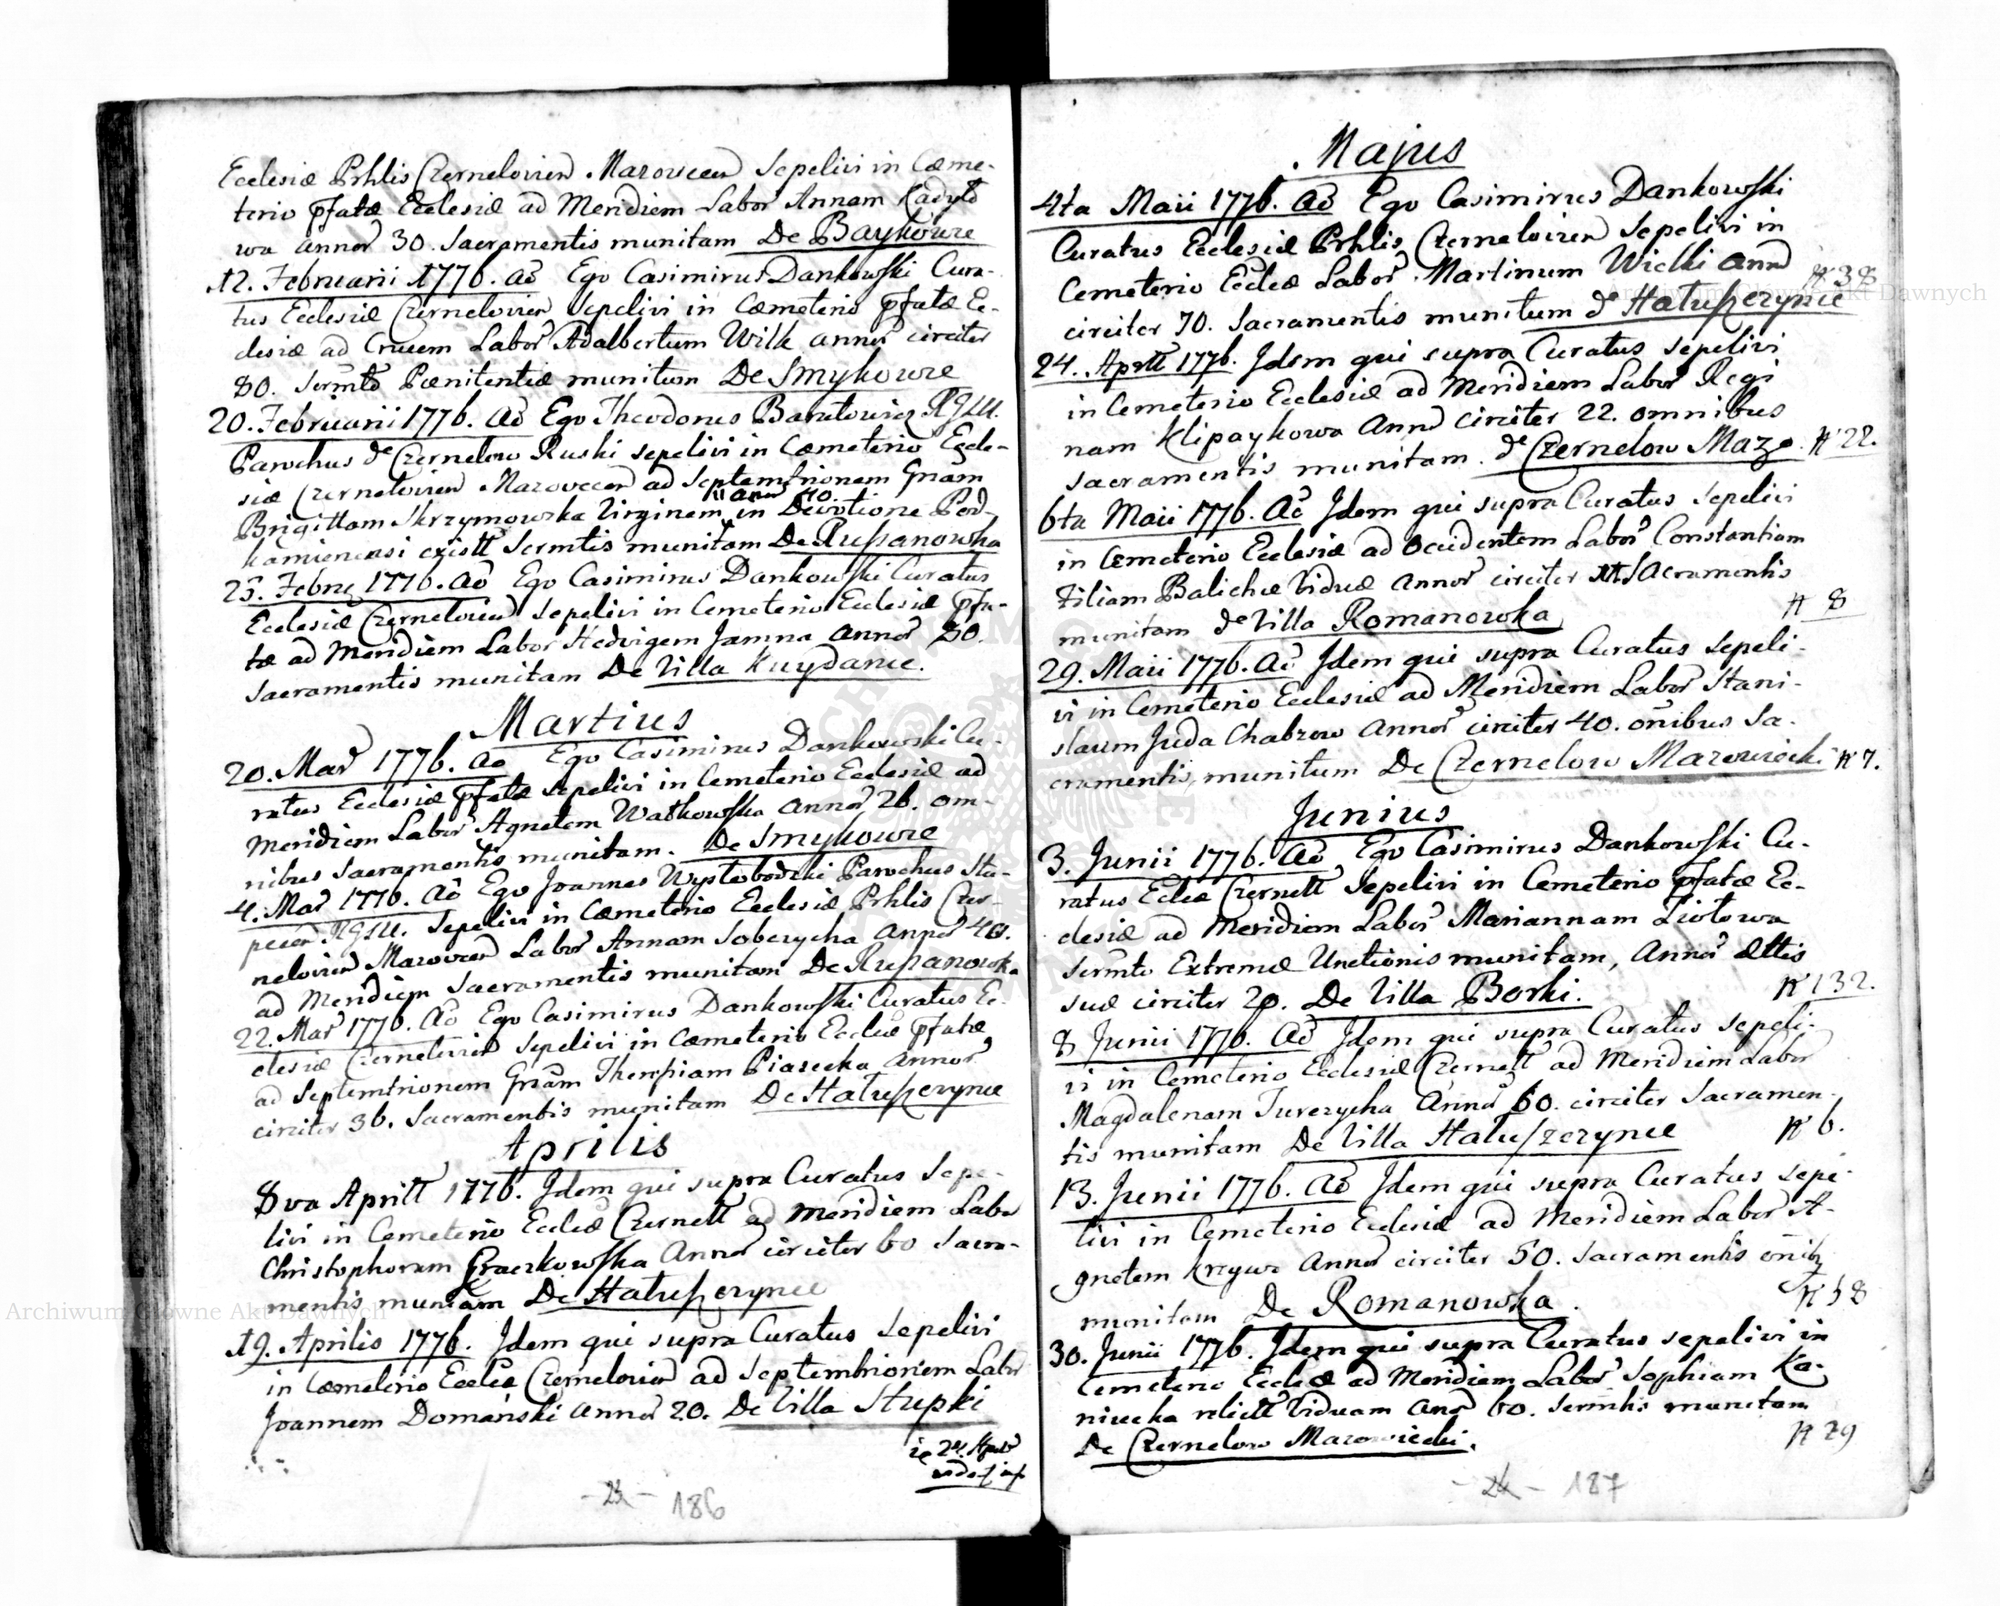 Ecclesiæ Prhlis Czerneloviẽn Mazoviecen Sepelivi in Cœme-
terio pfatæ Ecclesiæ ad Meridiem Labor Annam Kadylo
wa annor 30. Sacramentis munitam De Baykowce
12. Februarii 1776. Ao Ego Casimirus Dankowski Cura-
tus Ecclesiæ Czernelovien Sepelivi in Cœmeterio pfatæ Ec-
clesiæ ad Crucem Labor Adalbertum Wilk annor circiter
80. Sermto Pœnitentiæ munitum De Smykowce
20. Februarii 1776. Ao Ego Theodorus Baratowicz RGLU.
Parochus de Czernelow Ruski sepelivi in Cœmeterio Eccle-
siæ Czernelovien Mazovecen ad Septemtrionem Gnam
Brigittam Skrzymowska Virginem in Devotione Pod-
annor 40.
kamienensi existt Sermtis munitam De Russanowka
25. Febrz 1776. Ao Ego Casimirus Dankowski Curatus
Ecclesiæ Czernelovien Sepelivi in Cemeterio Ecclesiæ pfa-
tæ ad Meridiem Labor Hedvigem Jamna annor 50.
Sacramentis munitam De Villa Kuydance.
Martius
20. Mar 1776. Ao Ego Casimirus Dankowski Cu-
ratus Ecclesiæ pfatæ sepelivi in Cemeterio Ecclesiæ ad
Meridiem Labor Agnetem Watkowska annor 26. om-
nibus Sacramentis munitam. De Smykowce
4. Mar 1776. Ao Ego Joannes Wystobodzki Parochus Stu-
pecen RGLU. Sepelivi in Cœmeterio Ecclesiæ Prhlis Czer-
nelovien Mazovcen Labor Annam Soberycha annor 40.
ad Meridiem Sacramentis munitam De Russanowka
22. Mar 1776. Ao Ego Casimirus Dankowski Curatus Ec-
clesiæ Czernelovien Sepelivi in Cœmeterio Eccleæ pfatæ
ad Septemtrionem Gnam Theresiam Piasecka annor
circiter 36. Sacramentis munitam De Haluszczynce
Aprilis
8va Aprill 1776. Idem qui supra Curatus Sepe-
livi in Cemeterio Eccleæ Czernell ad Meridiem Labo
Christophoram Graczkowska Annor circiter 60 Sacra-
mentis munitam De Haluszczynce
19. Aprilis 1776. Idem qui supra Curatus Sepelivi
in Cœmeterio Eccleæ Czernelovien ad Septemtrionem Labor
Joannem Domański annor 20. De Villa Stupki
24. Apr
186
Majus
4ta Maii 1776. Ao Ego Casimirus Dankowski
Curatus Ecclesiæ Prhlis Czernelovien Sepelivi in
Cemeterio Eccleæ Labor Martinum Wielki annor
N 38
circiter 70. Sacramentis munitum de Haluszczynce
24. Aprll 1776. Idem qui supra Curatus sepelivi
in Cemeterio Ecclesiæ ad Meridiem Labor Regi
nam Klipaykowa Annor circiter 22. omnibus
sacramentis munitam. de Czernelow Mazo. N 22.
6ta Maii 1776. Ao Idem qui supra Curatus sepelivi
in Cemeterio Ecclesiæ ad Occidentem Labor Constantiam
Filiam Balichæ Viduæ annor circiter Sacramentis
munitam de Villa Romanowka N 8
29. Maii 1776. Ao Idem qui supra Curatus sepeli-
vi in Cemeterio Ecclesiæ ad Meridiem Labor Stani-
slaum Juda Chabrow annor circiter 40. oñibus Sa-
cramentis munitum De Czernelow Mazowiecki N 7.
Junius
3. Junii 1776. Ao Ego Casimirus Dankowski Cu-
ratus Eccleæ Czernell Sepelivi in Cemeterio pfatæ Ec-
clesiæ ad Meridiem Labor Mariannam Ziolowa
Sermto Extremæ Unctionis munitam, Annor ættis
suæ circiter 20. De Villa Borki. N 132.
8 Junii 1776. Ao Idem qui supra Curatus sepeli-
vi in Cemeterio Ecclesiæ Czernell ad Meridiem Labor
Magdalenam Turczycha Annor 60. circiter Sacramen-
tis munitam De Villa Haluszczynce N 6.
13. Junii 1776. Ao Idem qui supra Curatus sepe-
livi in Cemeterio Ecclesiæ ad Meridiem Labor A-
gnetem Krzywa Annor circiter 50. Sacramentis omib
munitam De Romanowka. N 58
30. Junii 1776. Idem qui supra Curatus sepelivi in
Cemeterio Eccleæ ad Meridiem Labor Sophiam Ka-
niucka relictt Viduam Anor 60. Sermtis munitam
De Czernelow Mazowiecki. N 29
187
Archiwum Główne Akt Dawnych
Archiwum Główne Akt Dawnych